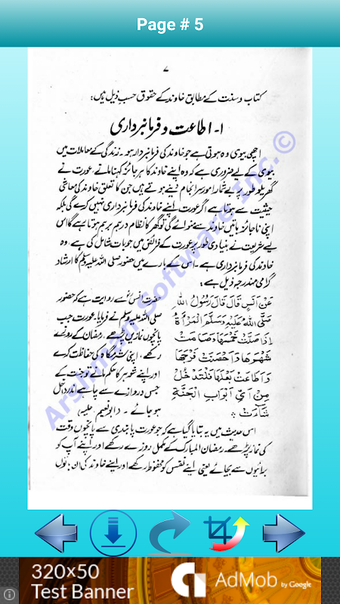 Page # 5
۷
کتاب و سنت کے مطابق خاوند کے حقوق حسب ذیل ہیں:
۱- اطاعت و فرمانبرداری
اچھی بیوی وہ ہوتی ہے جو خاوند کی فرمانبردار ہو۔ زندگی کے معاملات میں
بیوی کے لیے ضروری ہے کہ وہ اپنے خاوند کا ہر جائز کہنا مانے عورت نے
گھریلو طور پر بے شمار امور سرانجام دینے ہوتے ہیں جن کا تعلق خاوند کی معاشی
حیثیت سے ہوتا ہے اگر عورت اپنے خاوند کی فرمانبرداری نہیں کرے گی بلکہ
اپنی ناجائز باتیں خاوند سے منوائے گی تو گھر کا نظام درہم برہم ہوتا ہے گا اس
لیے شریعت نے بنیادی طور پر عورت کے فرائض میں جو بات شامل کی ہے، وہ
خاوند کی فرمانبرداری ہے۔ اس کے بارے میں حضور صلی اللہ علیہ وسلم کا ارشاد
گرامی مندرجہ ذیل ہے:
عَنْ اَنَسٍ قَالَ قَالَ رَسُوْلُ اللّٰهِ
صَلَّى اللّٰهُ عَلَيْهِ وَسَلَّمَ الْمَرْأَةُ
اِذَا صَلَّتْ خَمْسَهَا وَصَامَتْ
شَهْرَهَا وَاَحْصَنَتْ فَرْجَهَا
وَاَطَاعَتْ بَعْلَهَا فَلْتَدْخُلْ
مِنْ اَيِّ اَبْوَابِ الْجَنَّةِ
شَاءَتْ
حضرت انس سے روایت ہے کہ حضور
صلی اللہ علیہ وسلم نے فرمایا۔ عورت جب
پانچوں نمازیں پڑھے، رمضان کے روزے
رکھے، اپنی شرمگاہ کی حفاظت کرے
اور اپنے شوہر کا حکم مانے تو جنت کے
جس دروازے سے چاہے اندر داخل
ہو جائے۔ (ابو نعیم حلیہ)
اس حدیث میں یہ بتایا گیا ہے کہ جو عورت پابندی سے پانچوں وقت
کی نماز پڑھے، رمضان المبارک کے مکمل روزے رکھے اور اپنے آپ کو
برائیوں سے بچائے یعنی اپنے نفس کو محفوظ رکھے اور اپنے خاوند کی ان باتوں
320x50
Test Banner
AdMob by Google